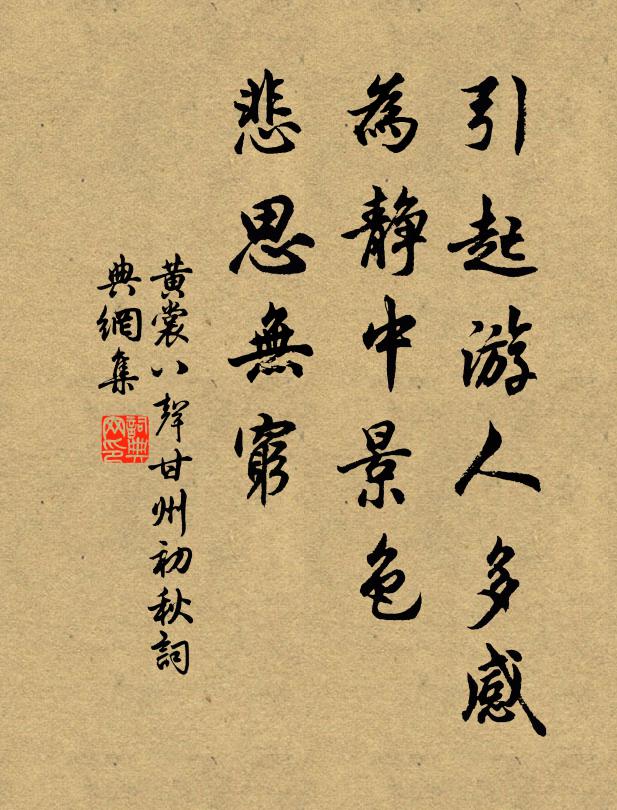 引起游人多感
為静中景色
悲思無窮
黄裳八聲甘州初秋詞
典網集
詞典网印